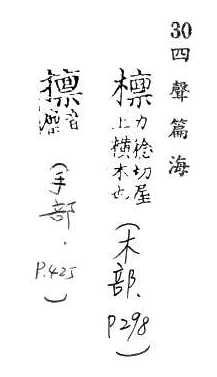 30 四聲篇海
檩 力稔切屋
上橫木也
(木部. P298)
音
(手部. P.425)